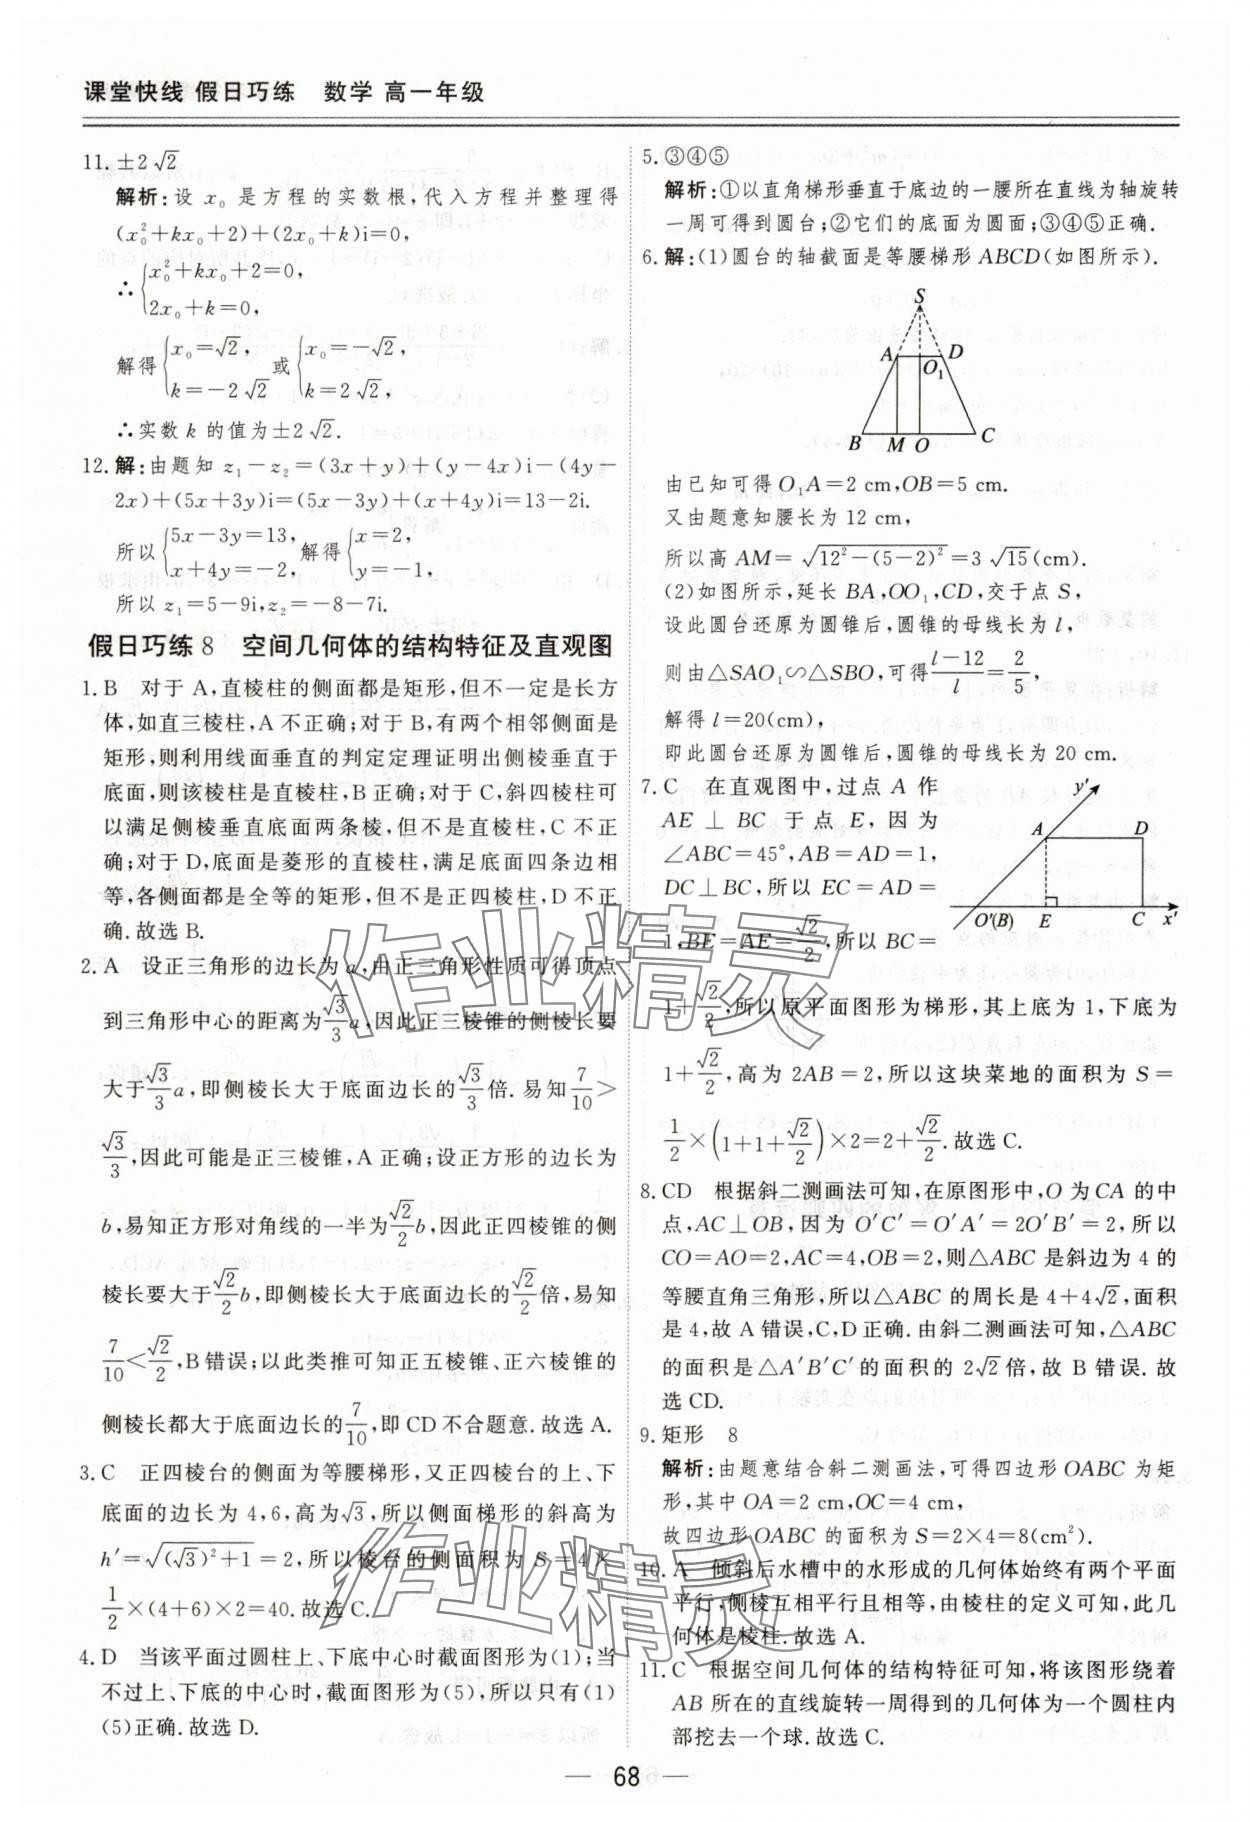 课堂快线 假日巧练　数学 高一年级
11. ±2√2
解析:设 x₀ 是方程的实数根,代入方程并整理得
(x₀²+kx₀+2)+(2x₀+k)i=0,
∴{x₀²+kx₀+2=0,
2x₀+k=0,
解得{x₀=√2, k=-2√2, 或{x₀=-√2, k=2√2,
∴实数 k 的值为±2√2.
12. 解:由题知 z₁-z₂=(3x+y)+(y-4x)i-(4y-
2x)+(5x+3y)i=(5x-3y)+(x+4y)i=13-2i.
所以{5x-3y=13, x+4y=-2, 解得{x=2, y=-1,
所以 z₁=5-9i,z₂=-8-7i.
假日巧练 8　空间几何体的结构特征及直观图
1. B　对于 A,直棱柱的侧面都是矩形,但不一定是长方
体,如直三棱柱,A 不正确;对于 B,有两个相邻侧面是
矩形,则利用线面垂直的判定定理证明出侧棱垂直于
底面,则该棱柱是直棱柱,B 正确;对于 C,斜四棱柱可
以满足侧棱垂直底面两条棱,但不是直棱柱,C 不正
确;对于 D,底面是菱形的直棱柱,满足底面四条边相
等,各侧面都是全等的矩形,但不是正四棱柱,D 不正
确.故选 B.
2. A　设正三角形的边长为 a,由正三角形性质可得顶点
到三角形中心的距离为√3/3 a,因此正三棱锥的侧棱长要
大于√3/3 a,即侧棱长大于底面边长的√3/3倍.易知7/10>
√3/3,因此可能是正三棱锥,A 正确;设正方形的边长为
b,易知正方形对角线的一半为√2/2 b,因此正四棱锥的侧
棱长要大于√2/2 b,即侧棱长大于底面边长的√2/2倍,易知
7/10<√2/2,B 错误;以此类推可知正五棱锥、正六棱锥的
侧棱长都大于底面边长的7/10,即 CD 不合题意.故选 A.
3. C　正四棱台的侧面为等腰梯形,又正四棱台的上、下
底面的边长为 4,6,高为√3,所以侧面梯形的斜高为
h′=√((√3)²+1)=2,所以棱台的侧面积为 S=4×
1/2×(4+6)×2=40.故选 C.
4. D　当该平面过圆柱上、下底中心时截面图形为(1);当
不过上、下底的中心时,截面图形为(5),所以只有(1)
(5)正确.故选 D.
5. ③④⑤
解析:①以直角梯形垂直于底边的一腰所在直线为轴旋转
一周可得到圆台;②它们的底面为圆面;③④⑤正确.
6. 解:(1)圆台的轴截面是等腰梯形 ABCD(如图所示).
S
A D
O₁
B M O C
由已知可得 O₁A=2 cm,OB=5 cm.
又由题意知腰长为 12 cm,
所以高 AM=√(12²-(5-2)²)=3√15(cm).
(2)如图所示,延长 BA,OO₁,CD,交于点 S,
设此圆台还原为圆锥后,圆锥的母线长为 l,
则由△SAO₁∽△SBO,可得(l-12)/l=2/5,
解得 l=20(cm),
即此圆台还原为圆锥后,圆锥的母线长为 20 cm.
7. C　在直观图中,过点 A 作
AE⊥BC 于点 E,因为
∠ABC=45°,AB=AD=1,
DC⊥BC,所以 EC=AD=
1,BE=AE=√2/2,所以 BC=
y′
A D
O′(B) E C x′
1+√2/2,所以原平面图形为梯形,其上底为 1,下底为
1+√2/2,高为 2AB=2,所以这块菜地的面积为 S=
1/2×(1+1+√2/2)×2=2+√2/2.故选 C.
8. CD　根据斜二测画法可知,在原图形中,O 为 CA 的中
点,AC⊥OB,因为 O′C′=O′A′=2O′B′=2,所以
CO=AO=2,AC=4,OB=2,则△ABC 是斜边为 4 的
等腰直角三角形,所以△ABC 的周长是 4+4√2,面积
是 4,故 A 错误,C,D 正确.由斜二测画法可知,△ABC
的面积是△A′B′C′的面积的 2√2倍,故 B 错误.故
选 CD.
9. 矩形　8
解析:由题意结合斜二测画法,可得四边形 OABC 为矩
形,其中 OA=2 cm,OC=4 cm,
故四边形 OABC 的面积为 S=2×4=8(cm²).
10. A　倾斜后水槽中的水形成的几何体始终有两个平面
平行,侧棱互相平行且相等,由棱柱的定义可知,此几
何体是棱柱.故选 A.
11. C　根据空间几何体的结构特征可知,将该图形绕着
AB 所在的直线旋转一周得到的几何体为一个圆柱内
部挖去一个球.故选 C.
作业精灵
作业精灵
68